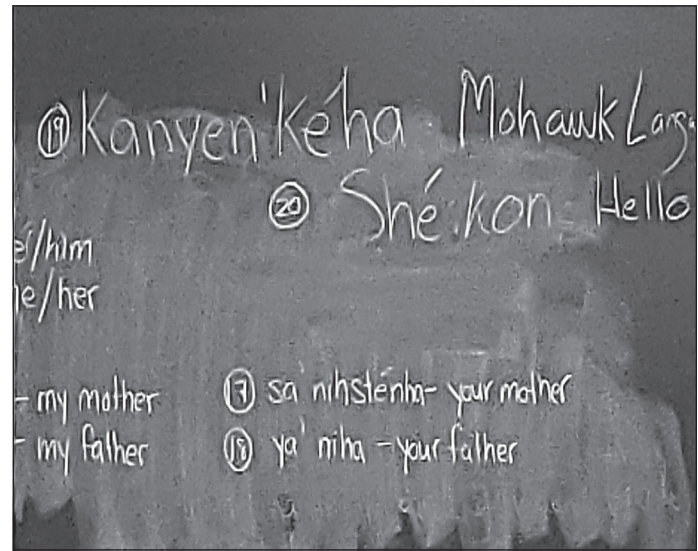 ⑲ Kanyen'kéha Mohawk Lang
⑳ Shé:kon Hello
e/him
e/her
- my mother ⑰ sa'nihsténha- your mother
- my father ⑱ ya'niha - your father